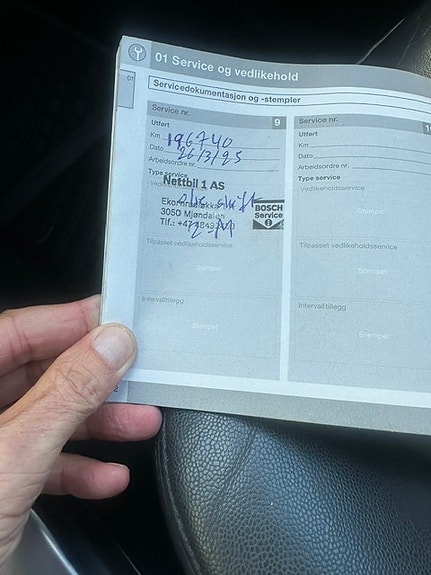 01 Service og vedlikehold
01
Servicedokumentasjon og -stempler
Service nr. 9
Utført
Km 196740
Dato 26/3/25
Arbeidsordre nr.
Type service
Nettbil 1 AS
3050 Mjøndalen
Tlf.: +47
olje skift
BOSCH
Service
Tilpasset vedlikeholdsservice
Stempel
Intervalltillegg
Stempel
Service nr.
Utført
Km
Dato
Arbeidsordre nr.
Type service
Vedlikeholdsservice
Stempel
Tilpasset vedlikeholdsservice
Stempel
Intervalltillegg
Stempel